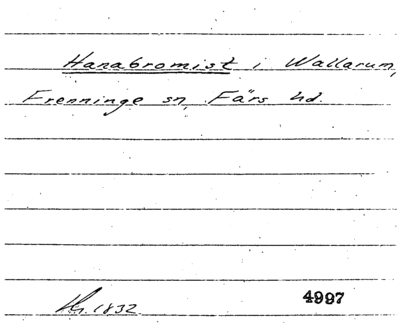 Hanabromist i Wallarum,
Frenninge sn, Färs hd.
1832
4997